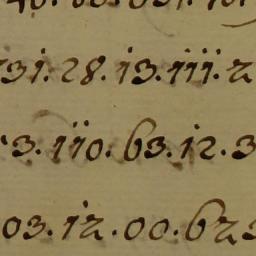 31.28.13.111.2
3.110.63.12.3
03.12.00.623